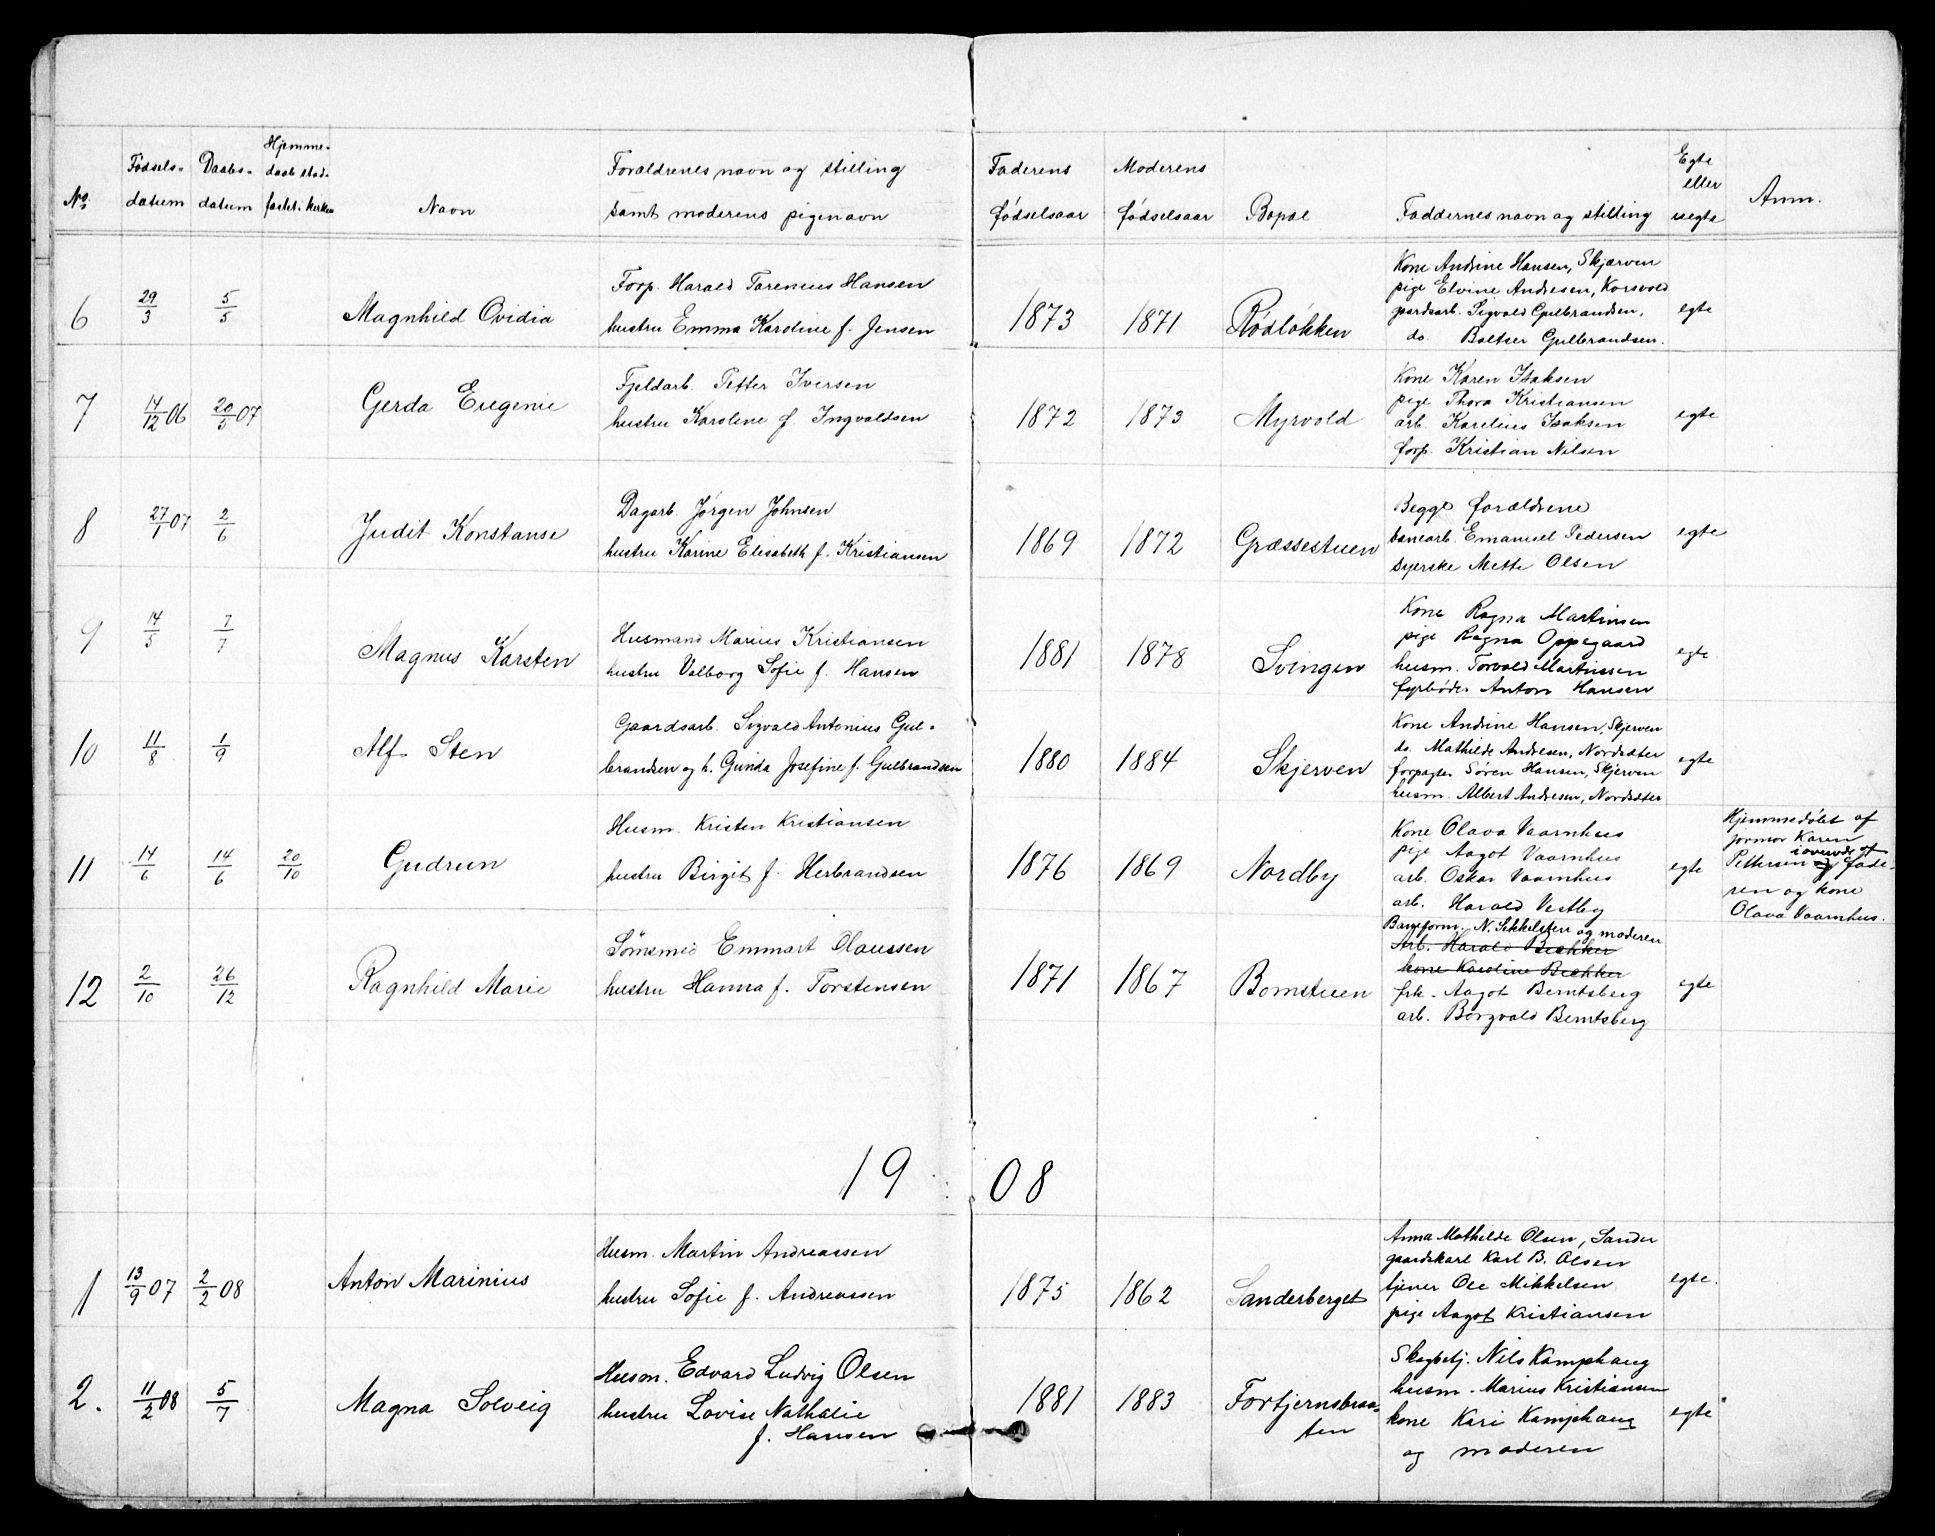 No. Fødsels-datum Daabs-datum Hjemme-daab stad-fæstet i kirken Navn Forældrenes navn og stilling samt moderens pigenavn Faderens fødselsaar Moderens fødselsaar Bopæl Faddernes navn og stilling Egte eller uegte Anm.
6 29/3 5/5 Magnhild Ovidia
Forp. Harald Torenius Hansen
hustru Emma Karoline f. Jensen
1873 1871 Rødløkken
Kone Andrine Hansen, Skjærven
pige Elvine Andresen, Korsvold
gaardsarb. Sigvald Gulbrandsen,
do. Boltser Gulbrandsen.
egte
7 14/12 06 20/5 07 Gerda Eugenie
Fjeldarb. Petter Iversen
hustru Karoline f Ingvaldsen
1872 1873 Myrvold
Kone Karen Isaksen
pige Thora Kristiansen
arb. Karelius Isaksen
forp. Kristian Nilsen
egte
8 27/1 07 2/6 Judit Konstanse
Dagarb. Jørgen Johnsen
hustru Karine Elisabeth f. Kristiansen
1869 1872 Græssestuen
Begge forældrene
banearb. Emanuel Pedersen
syerske Mette Olsen
egte
9 14/5 7/7 Magnus Karsten
Husmand Marius Kristiansen
hustru Valborg Sofie f. Hansen
1881 1878 Svingen
Kone Ragna Martinsen
pige Ragna Oppegaard
husm. Torvald Martinsen
fyrbøder Anton Hansen
egte.
10 11/8 1/9 Alf Sten
Gaardsarb. Sigvald Antonius Gul-
brandsen og h. Gunda Josefine f. Gulbrandsen
1880 1884 Skjerven
Kone Andrine Hansen, Skjerven
do. Mathilde Andresen, Nordsæter
forpagter Søren Hansen, Skjerven
husm. Albert Andresen, Nordsæter
egte
11 14/6 14/6 20/10 Gudrun
Husm. Kristen Kristiansen
hustru Birgit f. Herbrandsen
1876 1869 Nordby
Kone Olava Vaarnhus
pige Aagot Vaarnhus
arb. Oskar Vaarnhus
arb. Harald Vestby
egte
Hjemmedøbt af
jormor Karen
Pettersen i overvær af fade-
ren og kone
Olava Vaarnhus.
12 2/10 26/12 Ragnhild Marie
Tømsmed Emmart Olaussen
hustru Hanna f. Torstensen
1871 1867 Bomstuen
Baneform. N. Sikkelsten og moderen
Arb. Harald Bækker
kone Karoline Bækker
frk. Aagot Berntsberg
arb. Borgvald Berntsberg
egte
1908
1 13/9 07 2/2 08 Anton Marinius
Husm. Martin Andreassen
hustru Sofie f. Andreassen
1875 1862 Sanderberget
Anna Mathilde Olsen, Sander
gaardskarl Karl B. Olsen
tjener Ole Mikkelsen
pige Aagot Kristiansen
egte.
2. 11/2 08 5/7 Magna Solveig
Husm. Edvard Ludvig Olsen
hustru Lovise Nathalie
f. Hansen
1881 1883 Fortjernsbraa-
ten
Skogbetj. Nils Kamphaug
husm. Marius Kristiansen
kone Kari Kamphaug
og moderen
egte